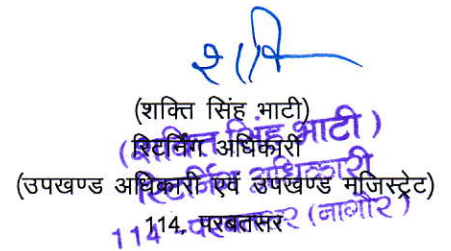 (शक्ति सिंह भाटी)
रिटर्निंग अधिकारी
(उपखण्ड अधिकारी एवं उपखण्ड मजिस्ट्रेट)
114, परबतसर
(शक्ति सिंह भाटी)
रिटर्निंग अधिकारी
114 - परबतसर (नागौर)